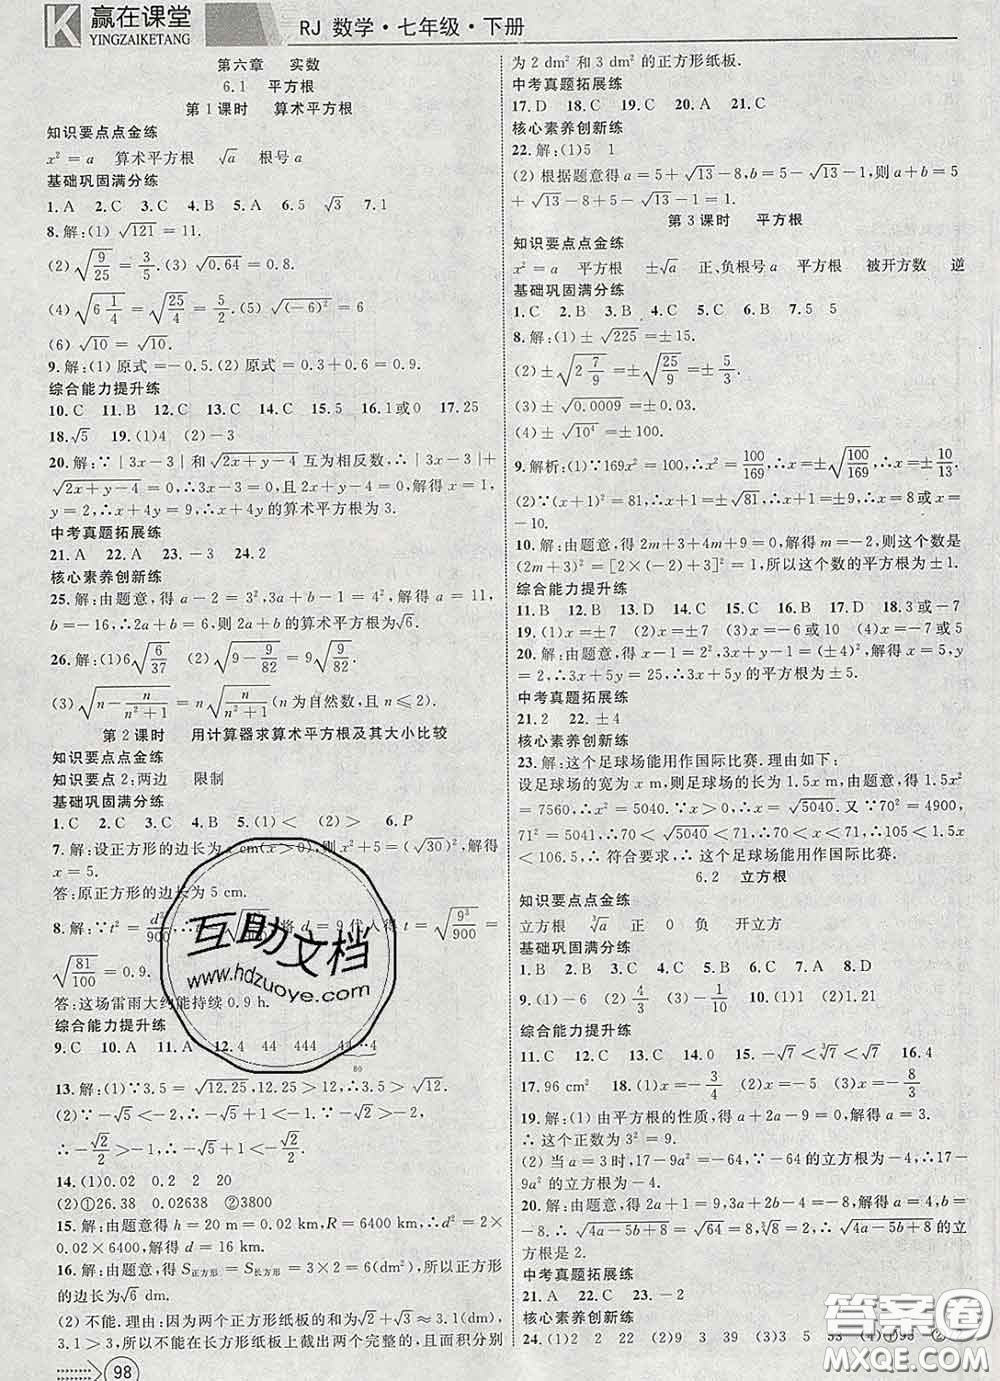 K 赢在课堂
YINGZAIKETANG
RJ 数学·七年级·下册
第六章 实数
6.1 平方根
第1课时 算术平方根
知识要点点金练
x²=a 算术平方根 √a 根号a
基础巩固满分练
1.A 2.C 3.C 4.B 5.A 6.5 √3 7.1
8.解:(1) √121=11.
(2)√(9/25)=3/5.(3) √0.64=0.8.
(4)√(6 1/4)=√(25/4)=5/2.(5) √(-6)²=6
(6) √10=√10.
9.解:(1)原式=-0.5.(2)原式=0.3+0.6=0.9.
综合能力提升练
10.C 11.B 12.C 13.C 14.C 15.5 16.1或0 17.25
18.√5 19.(1)4 (2)-3
20.解:∵|3x-3|和√(2x+y-4)互为相反数,∴|3x-3|+
√(2x+y-4)=0,∴3x-3=0,且2x+y-4=0,解得x=1,
y=2,∴x+4y=9,∴x+4y的算术平方根为3.
中考真题拓展练
21.A 22.A 23.-3 24.2
核心素养创新练
25.解:由题意,得a-2=3²,3a+b-1=4²,解得a=11,
b=-16,∴2a+b=6,则2a+b的算术平方根为√6.
26.解:(1)6√(6/37) (2)√(9-9/82)=9√(9/82)
(3)√(n-n/(n²+1))=n√(n/(n²+1))(n为自然数,且n≥2)
第2课时 用计算器求算术平方根及其大小比较
知识要点点金练
知识要点2:两边 限制
基础巩固满分练
1.C 2.C 3.C 4.B 5.(1)< (2)> 6.P
7.解:设正方形的边长为x cm(x>0),则x²+5=(√30)²,解得
x=5.
答:原正方形的边长为5 cm.
8.解:∵t²=d³/900,∴t=√(d³/900),将d=9代入得t=√(9³/900)=
√(81/100)=0.9.
答:这场雷雨大约能持续0.9 h.
综合能力提升练
9.C 10.A 11.A 12.4 44 444 44…4
13.解:(1)∵3.5=√12.25,12.25>12,∴3.5>√12.
(2)∵-√5<-2,∴-√5+1<-1,
∴-√2/2>-1,∴-√5+1<-√2/2.
14.(1)0.02 0.2 2 20
(2)①26.38 0.02638 ②3800
15.解:由题意得h=20 m=0.02 km,R=6400 km,∴d²=2×
0.02×6400,解得d=16 km.
16.解:由题意,得S正方形=S长方形=3×2=6(dm²),所以正方形
的边长为√6 dm.
(2)不能.理由:因为两个正方形的边长的和为√2+√3≈3.1(dm),
3.1>3,所以不能在长方形纸板上截出两个完整的,且面积分别
98
为2 dm²和3 dm²的正方形纸板.
中考真题拓展练
17.D 18.C 19.C 20.A 21.C
核心素养创新练
22.解:(1)5 1
(2)根据题意得a=5+√13-8,b=5-√13-1,则a+b=5
+√13-8+5-√13-1=1.
第3课时 平方根
知识要点点金练
x²=a 平方根 ±√a 正、负根号a 平方根 被开方数 逆
基础巩固满分练
1.C 2.B 3.B 4.C 5.C 6.B 7.5 5
8.解:(1)±√225=±15.
(2)±√(2 7/9)=±√(25/9)=±5/3.
(3)±√0.0009=±0.03.
(4)±√10⁴=±100.
9.解析:(1)∵169x²=100,∴x²=100/169,∴x=±√(100/169)=±10/13.
(2)∵(x+1)²=81,∴x+1=±√81,∴x+1=±9,∴x=8或x=
-10.
10.解:由题意,得2m+3+4m+9=0,解得m=-2,则这个数是
(2m+3)²=[2×(-2)+3]²=1.所以这个数的平方根为±1.
综合能力提升练
11.B 12.D 13.D 14.B 15.D 16.D 17.A 18.3或-7
19.(1)x=±7 (2)x=±7 (3)x=-6或10 (4)x=-7或5
20.解:由题意,得x-1=2²,3x+y-1=(±4)²,解得x=5,
y=2,∴3x+5y=25,∴3x+5y的平方根为±5.
中考真题拓展练
21.2 22.±4
核心素养创新练
23.解:这个足球场能用作国际比赛.理由如下:
设足球场的宽为x m,则足球场的长为1.5x m,由题意,得1.5x²
=7560,∴x²=5040.∵x>0,∴x=√5040.又∵70²=4900,
71²=5041,∴70<√5040<71,∴70<x<71,∴105<1.5x
<106.5,∴符合要求,∴这个足球场能用作国际比赛.
6.2 立方根
知识要点点金练
立方根 ³√a 正 0 负 开立方
基础巩固满分练
1.B 2.B 3.C 4.D 5.A 6.C 7.A 8.D
9.(1)-6 (2)4/3 (3)-1/10 10.(1)1.2 (2)0.1
综合能力提升练
11.C 12.C 13.C 14.0 15.-√7<³√7<√7 16.4
17.96 cm² 18.(1)x=-3/4 (2)x=-4 (3)x=-8/3
19.解:(1)由平方根的性质,得a+2a-9=0,解得a=3.
∴这个正数为3²=9.
(2)当a=3时,17-9a²=-64,∵-64的立方根为-4,∴17-
9a²的立方根为-4.
20.解:由题意,得2a+1=9,5a+2b-2=4,解得a=4,b=
-8.∴√(4a-5b+8)=√64=8,³√8=2.∴√(4a-5b+8)的立
方根是2.
中考真题拓展练
21.A 22.C 23.-2
核心素养创新练
互助文档
www.hdzuoye.com
答案圈
MXQE.COM